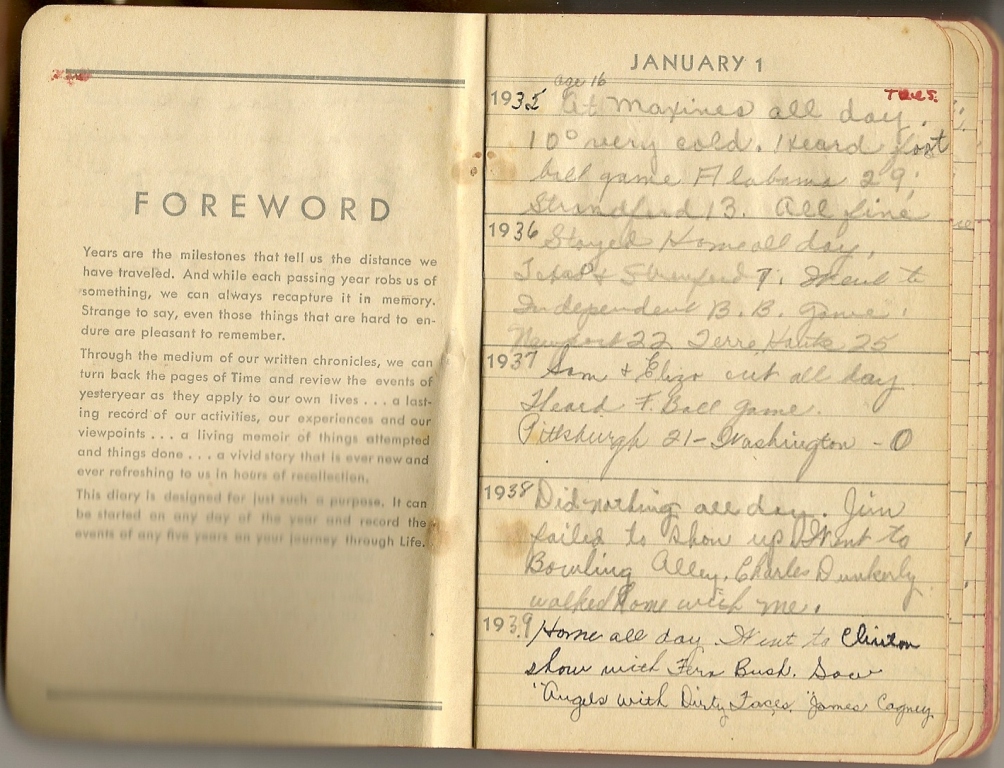 FOREWORD
Years are the milestones that tell us the distance we
have traveled. And while each passing year robs us of
something, we can always recapture it in memory.
Strange to say, even those things that are hard to en-
dure are pleasant to remember.
Through the medium of our written chronicles, we can
turn back the pages of Time and review the events of
yesteryear as they apply to our own lives . . . a last-
ing record of our activities, our experiences and our
viewpoints . . . a living memoir of things attempted
and things done . . . a vivid story that is ever new and
ever refreshing to us in hours of recollection.
This diary is designed for just such a purpose. It can
be started on any day of the year and record the
events of any five years on your journey through Life.
JANUARY 1
age 16
Tues.
1935 At Maxines all day.
10° very cold. Heard foot
ball game Alabama 29;
Strandford 13. All fine
1936 Stayed Home all day,
Went to
Independent B. B. Game.
Newport 22 Terre Haute 25
1937 Sam & Eliza out all day
Heard F. Ball Game.
Pittsburgh 21 - Washington - 0
1938 Did nothing all day. Jim
failed to show up. Went to
Bowling Alley. Charles Dunkerly
walked home with me.
1939 Home all day. Went to Clinton
show with Fern Bush. Saw
"Angels with Dirty Faces." James Cagney